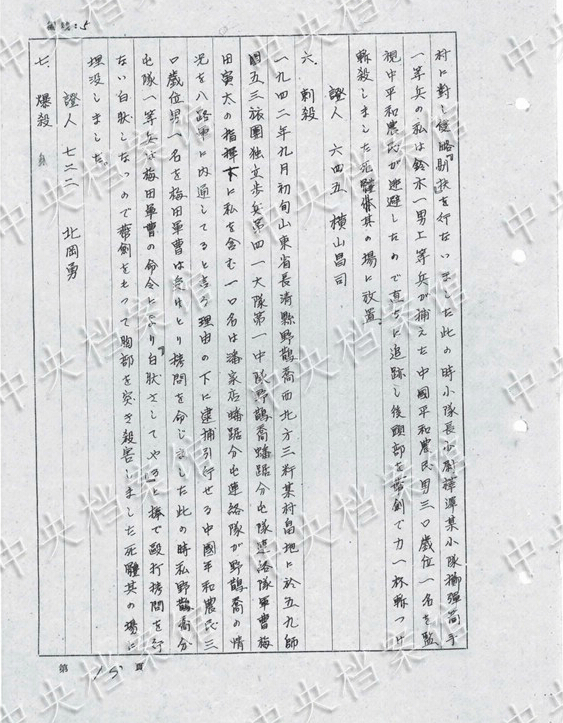 村に対し侵略剔抉を行ないました此の時小隊長少尉樺澤某小隊擲彈筒手
一等兵の私は鈴木一男上等兵が捕えた中國平和農民男三〇歳位一名を監
視中平和農民が逃避したので直ちに追跡し後頭部を帶剣で力一杯斬つけ
斬殺しました死體其の場に放置
證人 六四五 横山昌司
六. 刺殺
一九四二年九月初旬山東省長清縣野鵲喬西北方三粁某村畠地に於五九師
團五三旅團独立歩兵第四一大隊第一中隊野鵲喬蟠踞分屯隊連絡隊軍曹梅
田寅太の指揮下に私を含む一〇名は潘家店蟠踞分屯連絡隊が野鵲喬の情
況を八路軍に内通してると言う理由の下に逮捕引行せる中國平和農民三
〇歳位男一名を梅田軍曹は受けとり拷問を命じました此の時私野鵲喬分
屯隊一等兵は梅田軍曹の命令により「白狀さしてやる」と棒で毆打拷問を行
ない白狀しなつので帶劍をもって胸部を突き殺害しました死體其の場に
埋没しました。
證人 七三二 北岡勇
七. 爆殺
第 15 頁
中央档案馆